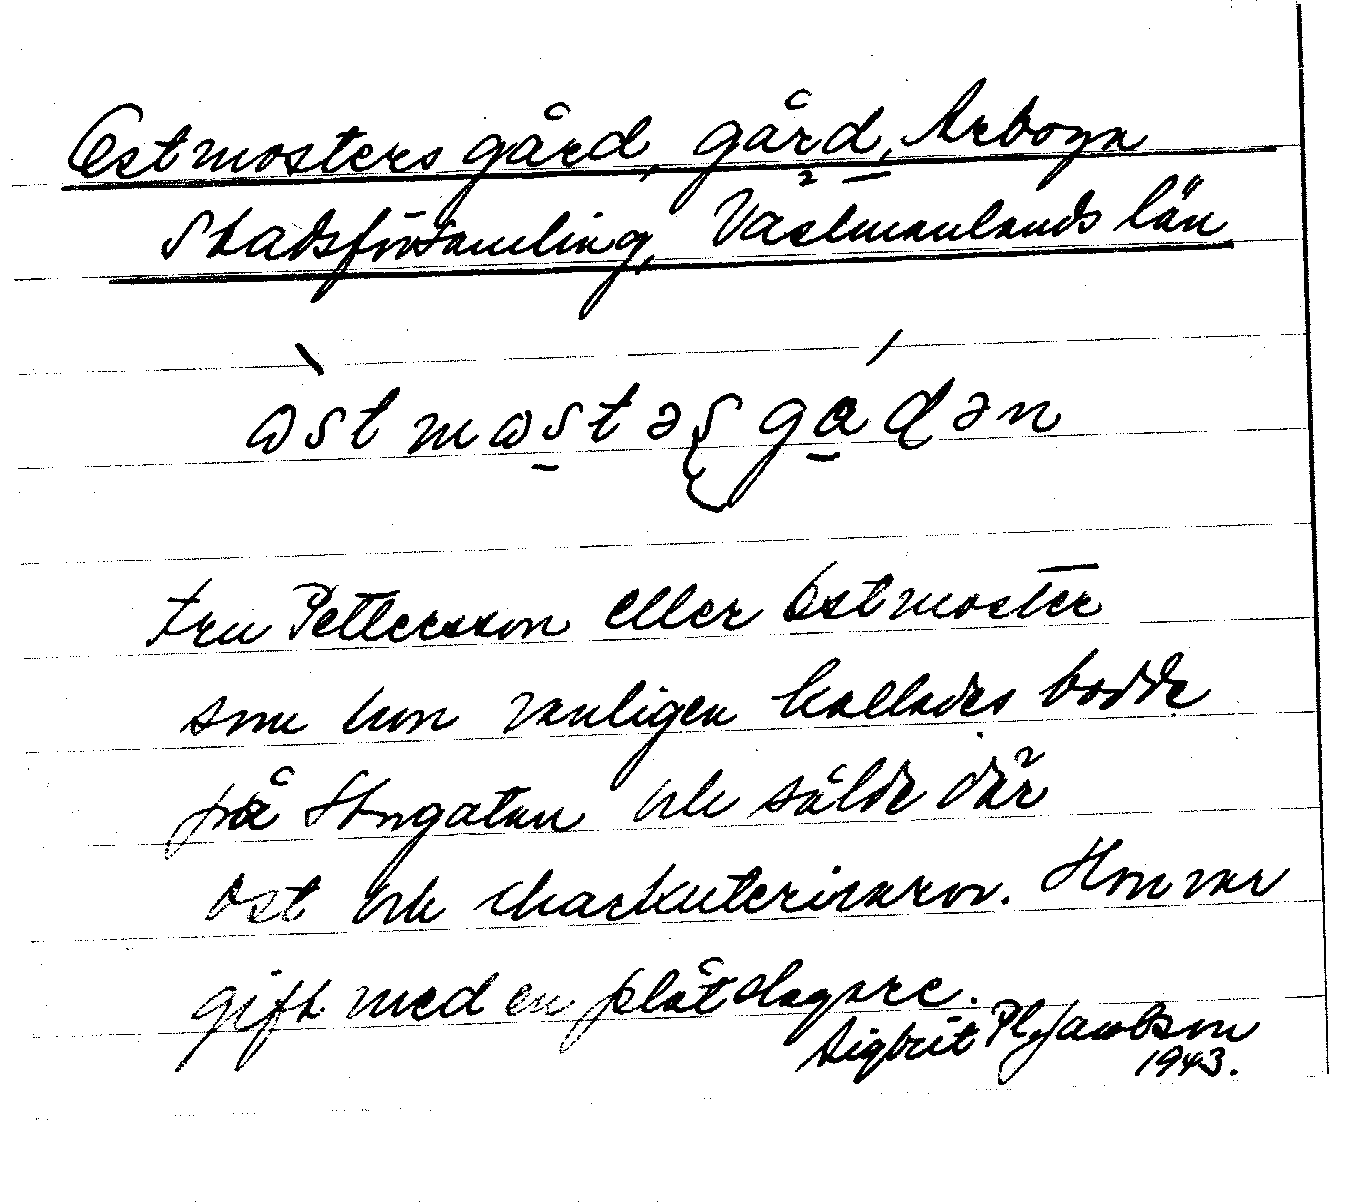 Ostmosters gård, gård, Arboga
Stadsförsamling, Västmanlands län
ωstmωstəʂgaɖən
Fru Pettersson eller Ostmoster
som hon vanligen kallades bodde
på Storgatan och sålde där
ost och charkuterivaror. Hon var
gift med en plåtslagare.
Sigbrit Pl. Jacobson
1943.